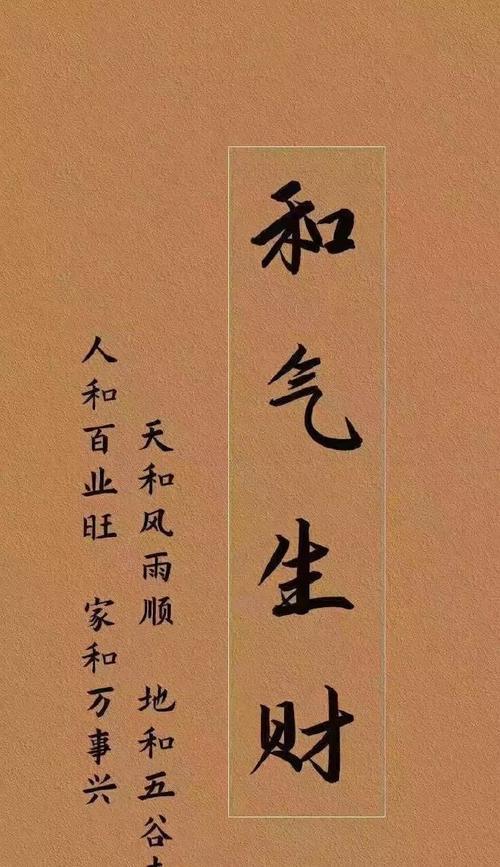 和气生财
天和风雨顺 地和五谷
人和百业旺 家和万事兴